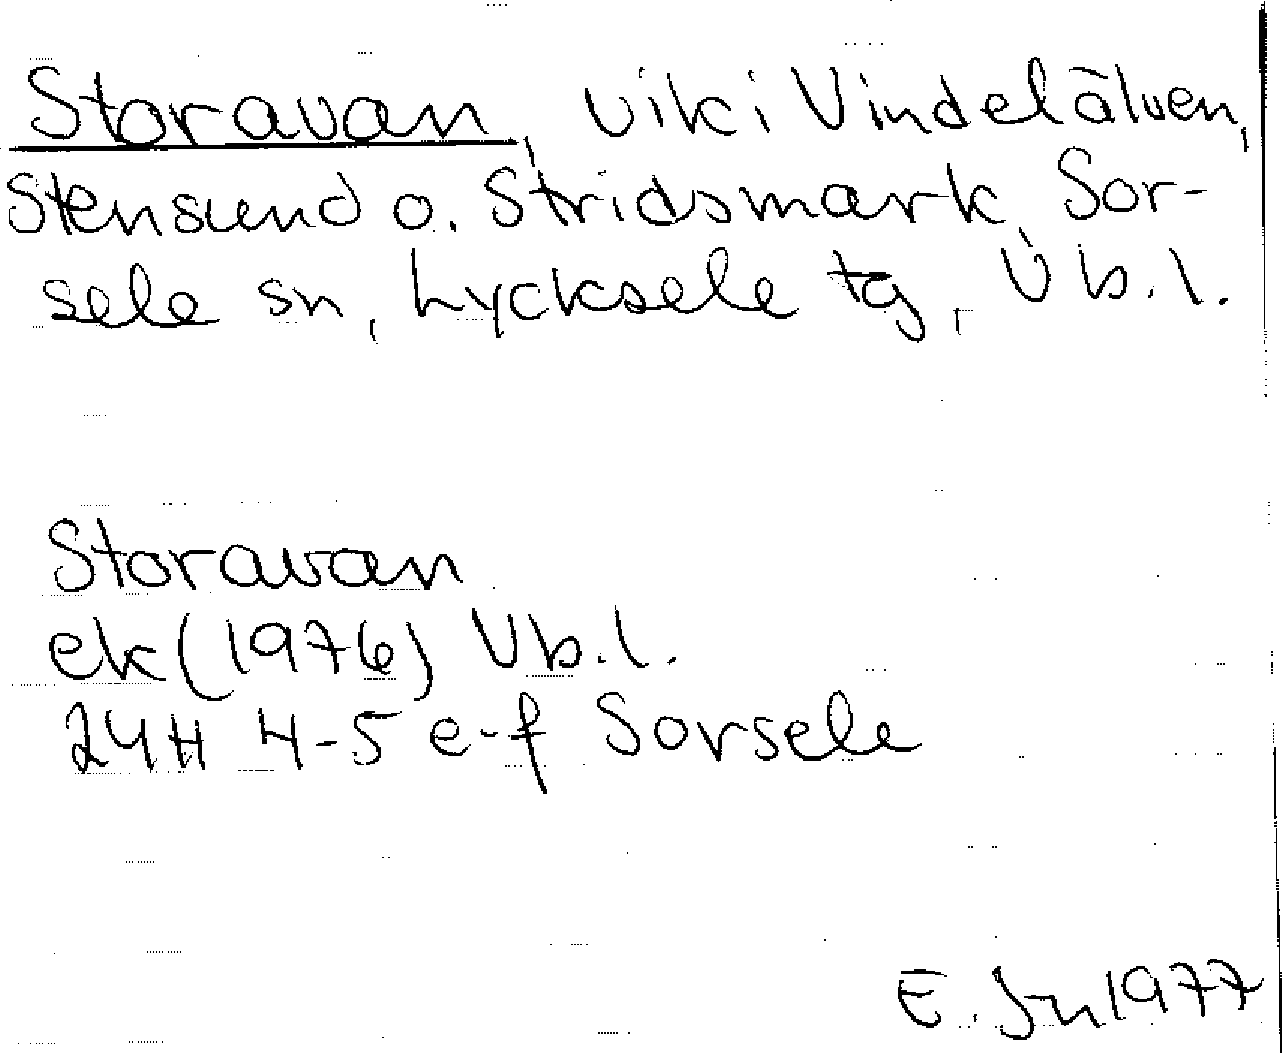 Storavan, vik i Vindelälven,
Stensund o. Stridsmark, Sor-
sele sn, Lycksele tg, Vb.l.
Storavan
ek (1976) Vb.l.
24H 4-5 e-f Sorsele
E. Jn 1977